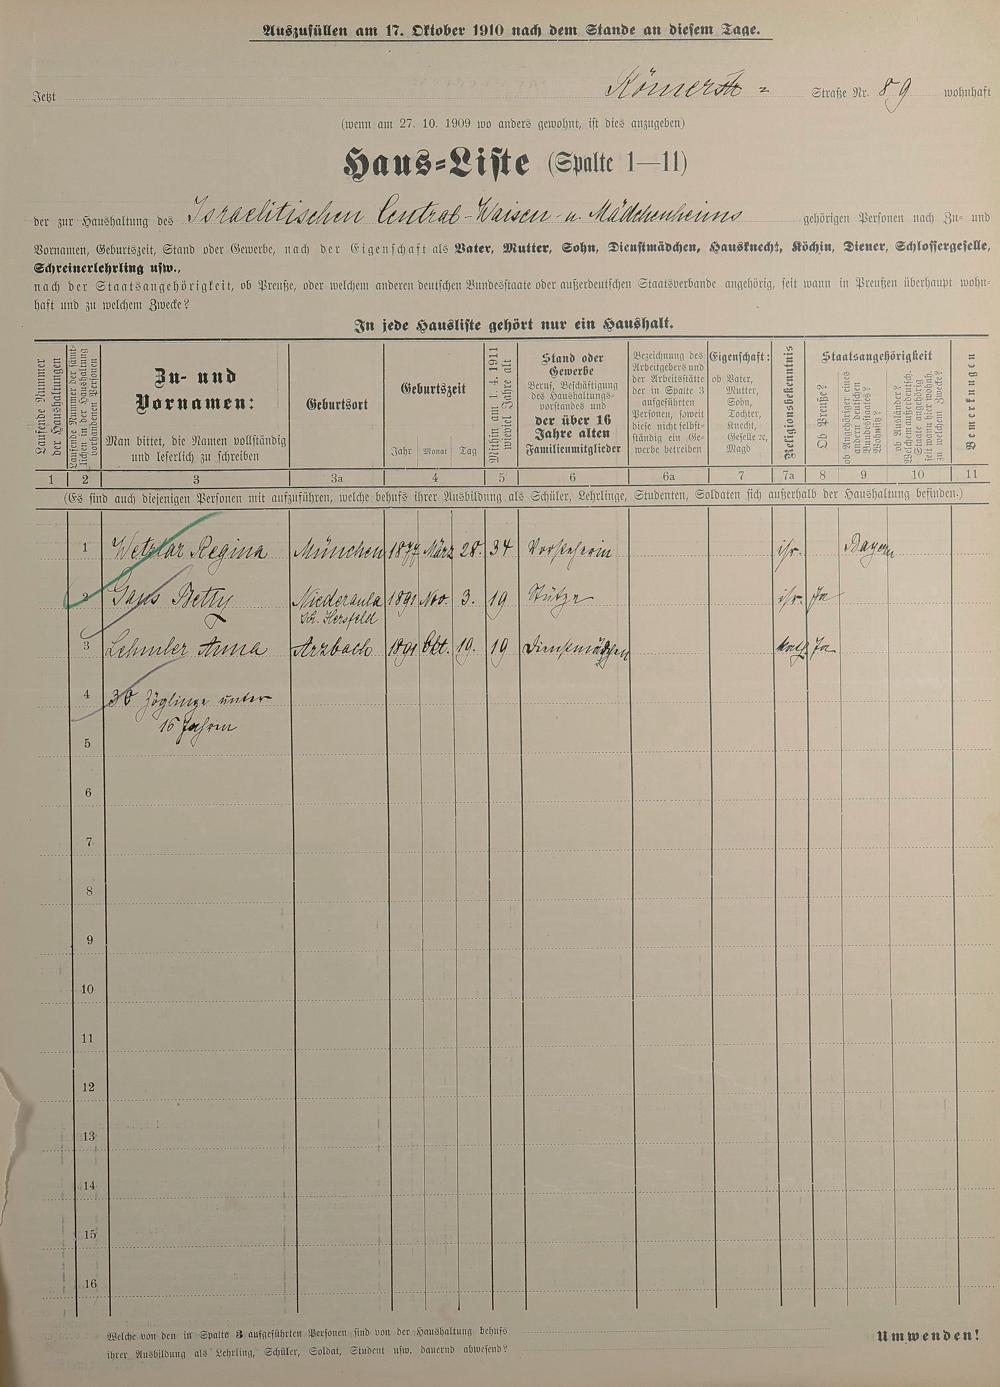 Auszufüllen am 17. Oktober 1910 nach dem Stande an diesem Tage.
Jetzt Römerstr = Straße Nr. 89 wohnhaft
(wenn am 27. 10. 1909 wo anders gewohnt, ist dies anzugeben)
Haus=Liste (Spalte 1—11)
der zur Haushaltung des Israelitischen Central-Waisen- u. Mädchenheims gehörigen Personen nach Zu- und
Vornamen, Geburtszeit, Stand oder Gewerbe, nach der Eigenschaft als Vater, Mutter, Sohn, Dienstmädchen, Hausknecht, Köchin, Diener, Schlossergeselle,
Schreinerlehrling usw.,
nach der Staatsangehörigkeit, ob Preuße, oder welchem anderen deutschen Bundesstaate oder außerdeutschen Staatsverbande angehörig, seit wann in Preußen überhaupt wohn-
haft und zu welchem Zwecke?
In jede Hausliste gehört nur ein Haushalt.
Laufende Nummer
der Haushaltungen
Laufende Nummer der sämt-
lichen in der Haushaltung
vorhandenen Personen
Zu- und
Vornamen:
Man bittet, die Namen vollständig
und leserlich zu schreiben
Geburtsort
Geburtszeit
Jahr Monat Tag
Mithin am 1. 4. 1911
wieviel Jahre alt
Stand oder
Gewerbe
Beruf, Beschäftigung
des Haushaltungs-
vorstandes und
der über 16
Jahre alten
Familienmitglieder
Bezeichnung des
Arbeitgebers und
der Arbeitsstätte
der in Spalte 3
aufgeführten
Personen, soweit
diese nicht selbst-
ständig ein Ge-
werbe betreiben
Eigenschaft:
ob Vater,
Mutter,
Sohn,
Tochter,
Knecht,
Geselle ec,
Magd
Religionsbekenntnis
Staatsangehörigkeit
Ob Preuße?
ob Angehöriger eines
andern deutschen
Bundesstaates?
Wohnsitz?
ob Ausländer?
Welchem außerdeutsch.
Staate angehörig
seit wann hier wohnh.
zu welchem Zwecke?
Bemerkungen
1 2 3 3a 4 5 6 6a 7 7a 8 9 10 11
(Es sind auch diejenigen Personen mit aufzuführen, welche behufs ihrer Ausbildung als Schüler, Lehrlinge, Studenten, Soldaten sich außerhalb der Haushaltung befinden.)
1 Wetzlar Regina München 1877 März 28. 34 Vorsteherin isr. Bayern
2 Gans Betty Niederaula 1891 Nov. 3. 19 Stütze isr. Ja
Kr. Hersfeld
3 Lehmler Anna Arzbach 1891 Okt. 19. 19 Dienstmädchen kath. Ja
4 30 Zöglinge unter
16 Jahren
5
6
7
8
9
10
11
12
13
14
15
16
Welche von den in Spalte 3 aufgeführten Personen sind von der Haushaltung behufs
ihrer Ausbildung als Lehrling, Schüler, Soldat, Student usw. dauernd abwesend?
Umwenden!